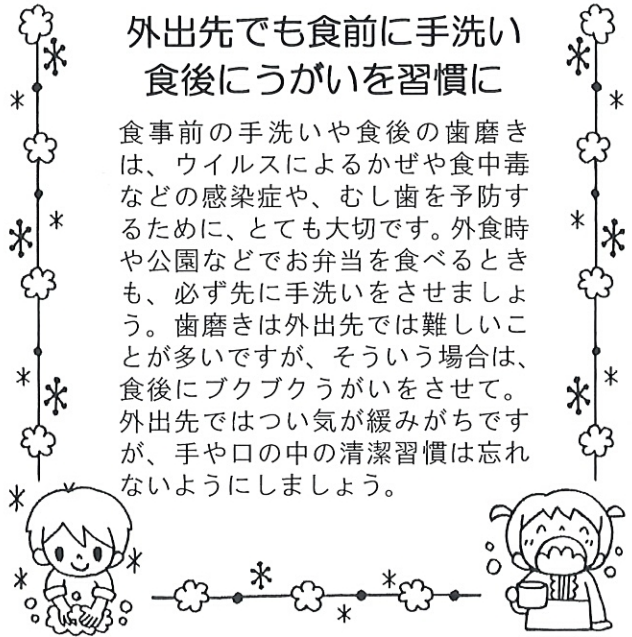 外出先でも食前に手洗い
食後にうがいを習慣に
食事前の手洗いや食後の歯磨き
は、ウイルスによるかぜや食中毒
などの感染症や、むし歯を予防す
るために、とても大切です。外食時
や公園などでお弁当を食べるとき
も、必ず先に手洗いをさせましょ
う。歯磨きは外出先では難しいこ
とが多いですが、そういう場合は、
食後にブクブクうがいをさせて。
外出先ではつい気が緩みがちです
が、手や口の中の清潔習慣は忘れ
ないようにしましょう。